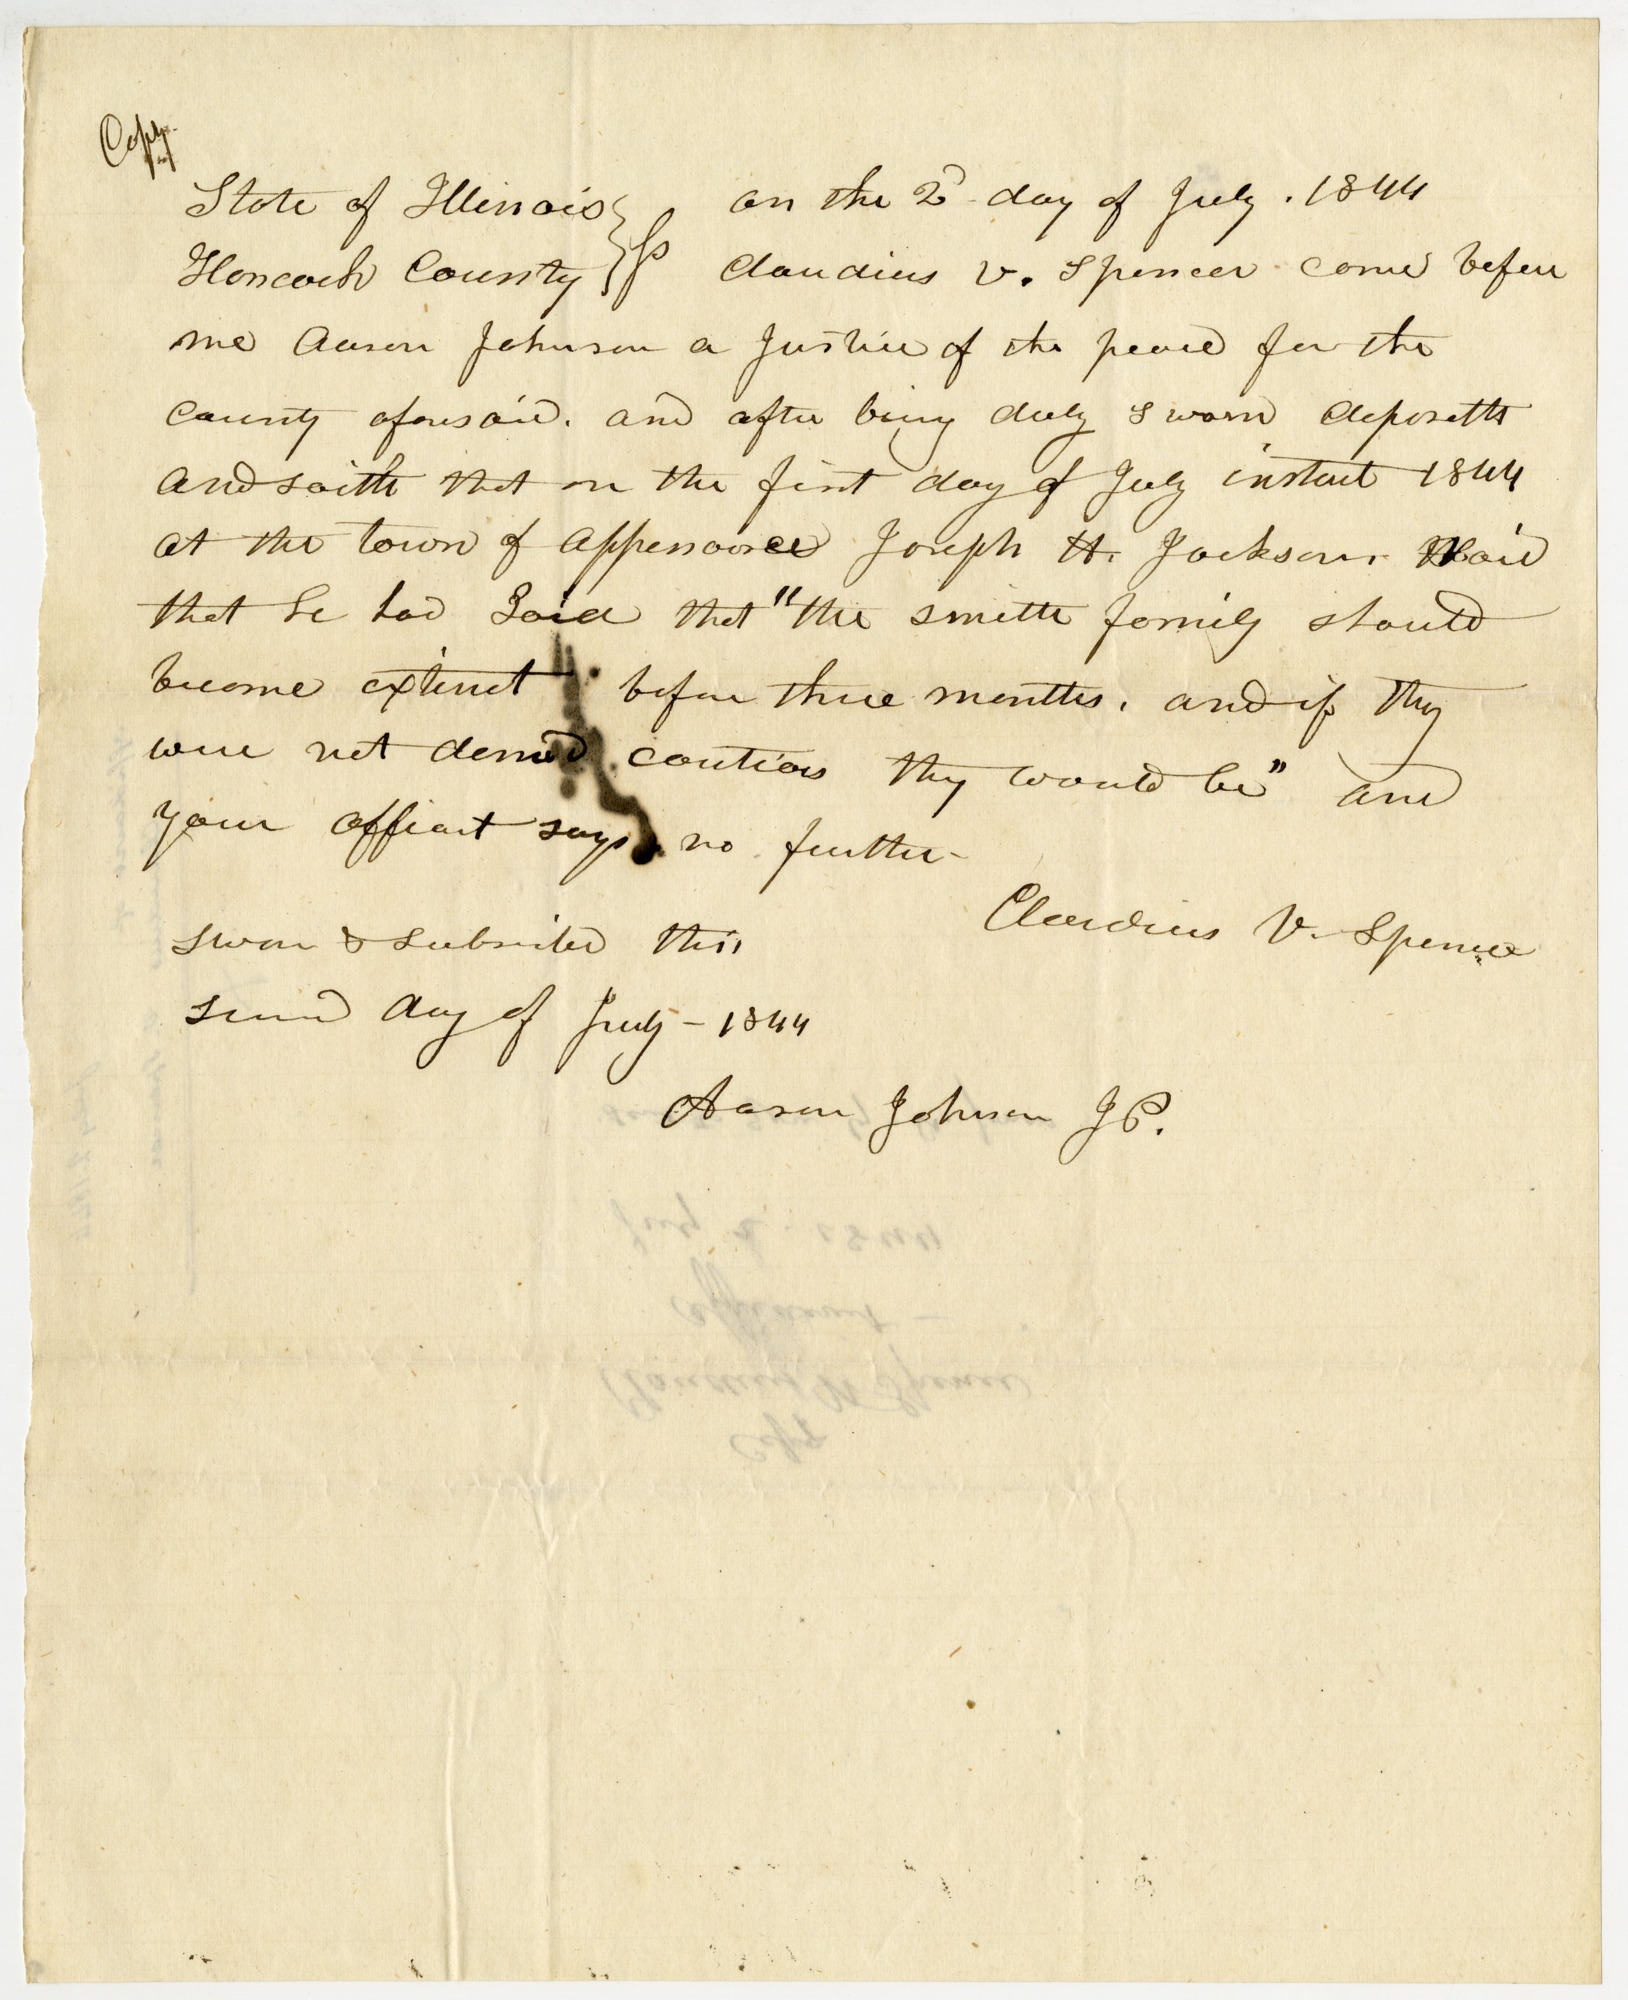 Copy
State of Illinois } ss on the 2d day of July. 1844
Hancock County } Claudius V. Spencer came before
me Aaron Johnson a Justice of the peace for the
County aforesaid. and after being duly sworn deposeth
and saith that on the first day of July instant 1844
at the town of Appenooce Joseph H. Jackson. said
that he had said that "the smith family should
become extinct before three months. and if they
were not damed cautious they would be" and
your affiant says no further-
Claudius V. Spencer
sworn & subscribed this
second day of July - 1844
Aaron Johnson J P.
July 2 - 1844
Affidavit -
Claudius V Spencer
Copy